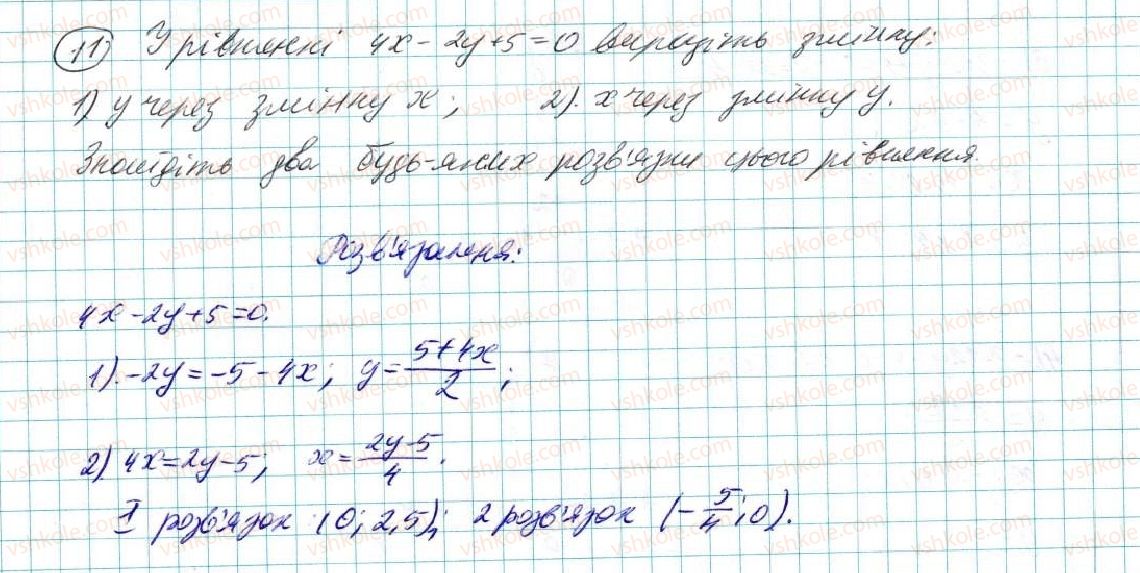 11) У рівнянні 4x - 2y + 5 = 0 виразіть змінну:
1) y через змінну x; 2). x через змінну y.
Знайдіть два будь-яких розв'язки цього рівняння.
Розв'язання:
4x - 2y + 5 = 0.
1). -2y = -5 - 4x; y = (5+4x)/2;
2) 4x = 2y - 5; x = (2y-5)/4.
I розв'язок (0; 2,5); 2 розв'язок (-5/4; 0).